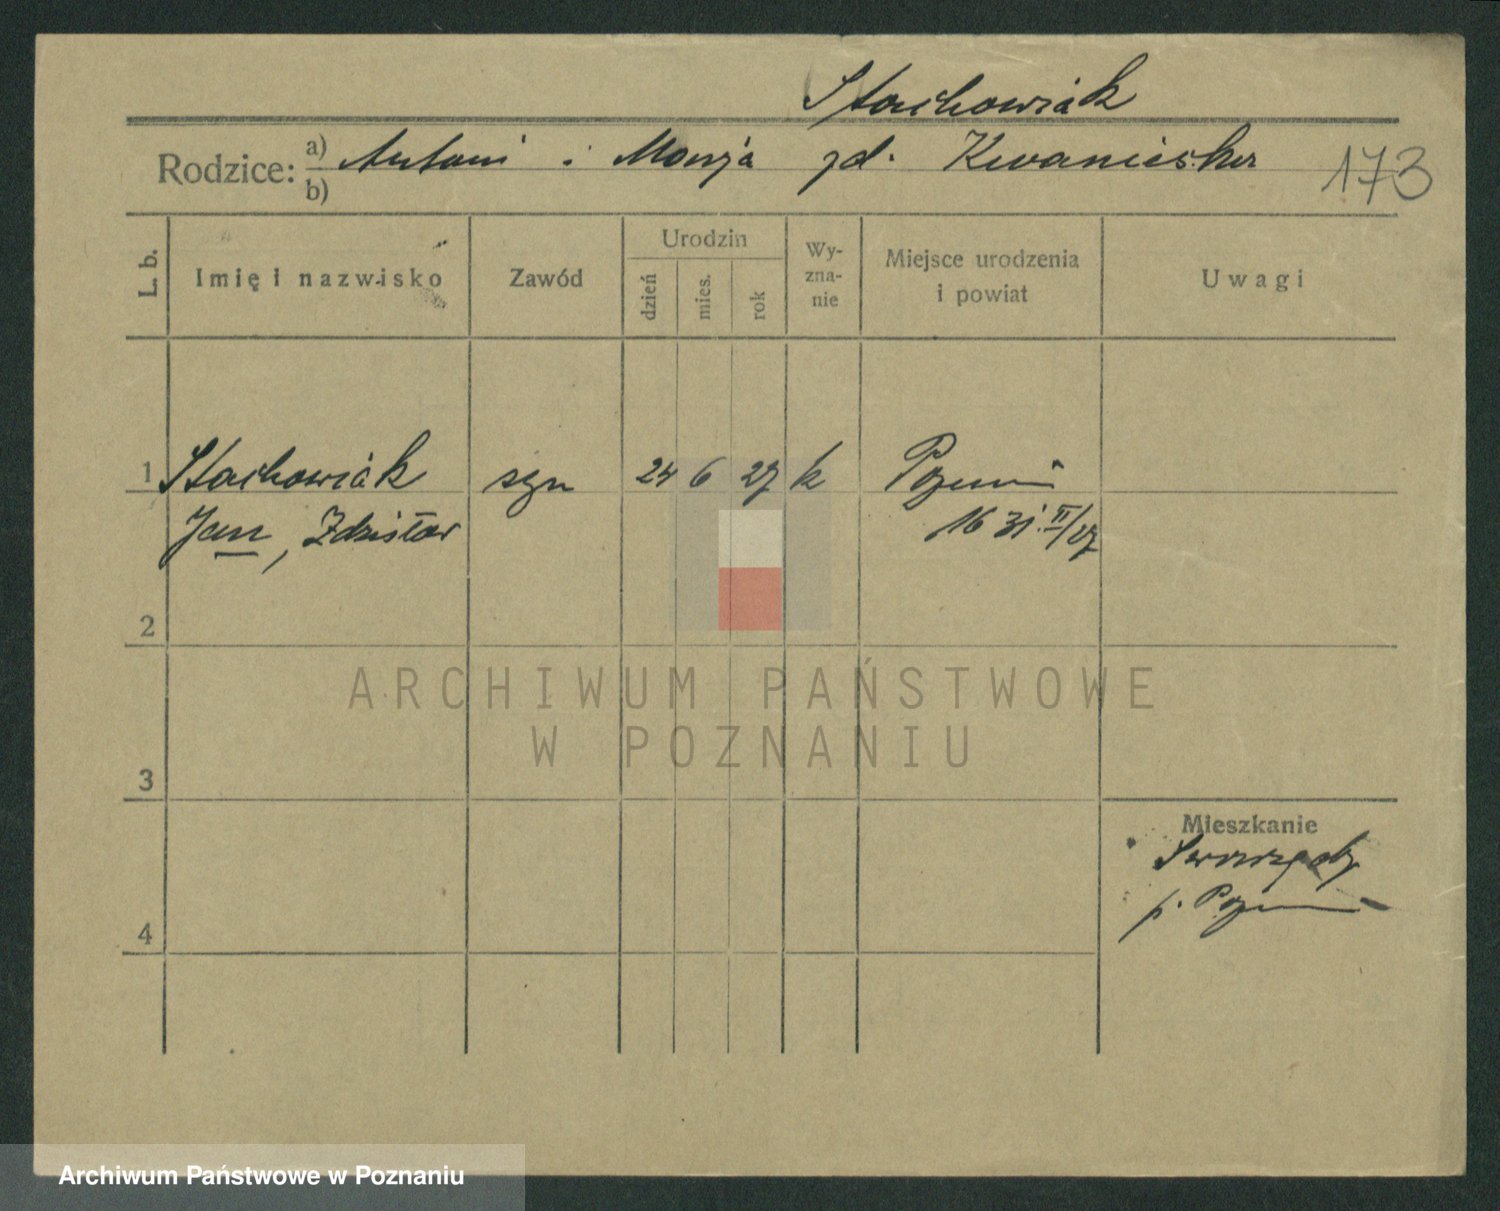 Stachowiak
Rodzice: a) Antoni i Marja zd.
b)
173
L. b.
Imię i nazwisko
Zawód
Urodzin
dzień
mies.
rok
Wy-
zna-
nie
Miejsce urodzenia
i powiat
Uwagi
1 Stachowiak syn 24 6 27 k Poznań
Jan, Zdzisław 16 31. II/27
2
3
4
Mieszkanie
Swarzędz
p. Poznań
ARCHIWUM PAŃSTWOWE
W POZNANIU
Archiwum Państwowe w Poznaniu